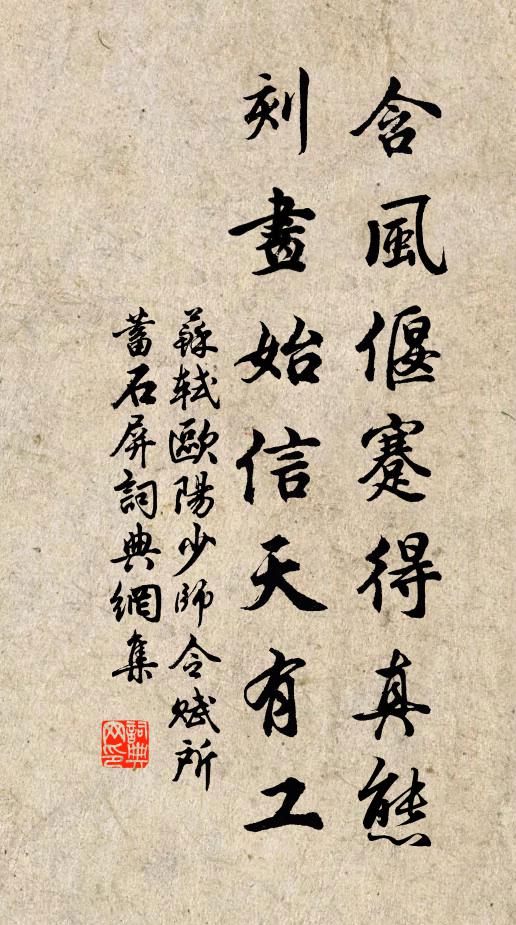 含風偃蹇得真態
刻畫始信天有工
蘇軾歐陽少師令賦所
蓄石屏詞典網集
詞典